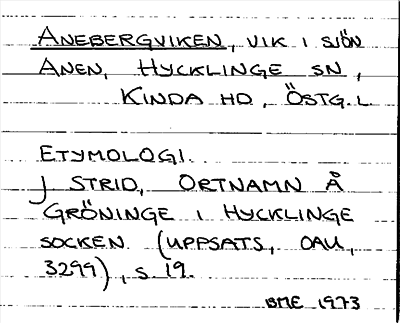 ANEBERGVIKEN, VIK I SJÖN
ANEN, HYCKLINGE SN,
KINDA HD, ÖSTG. L.
ETYMOLOGI.
J STRID, ORTNAMN Å
GRÖNINGE I HYCKLINGE
SOCKEN. (UPPSATS, OAU,
3299), S. 19.
BME 1973